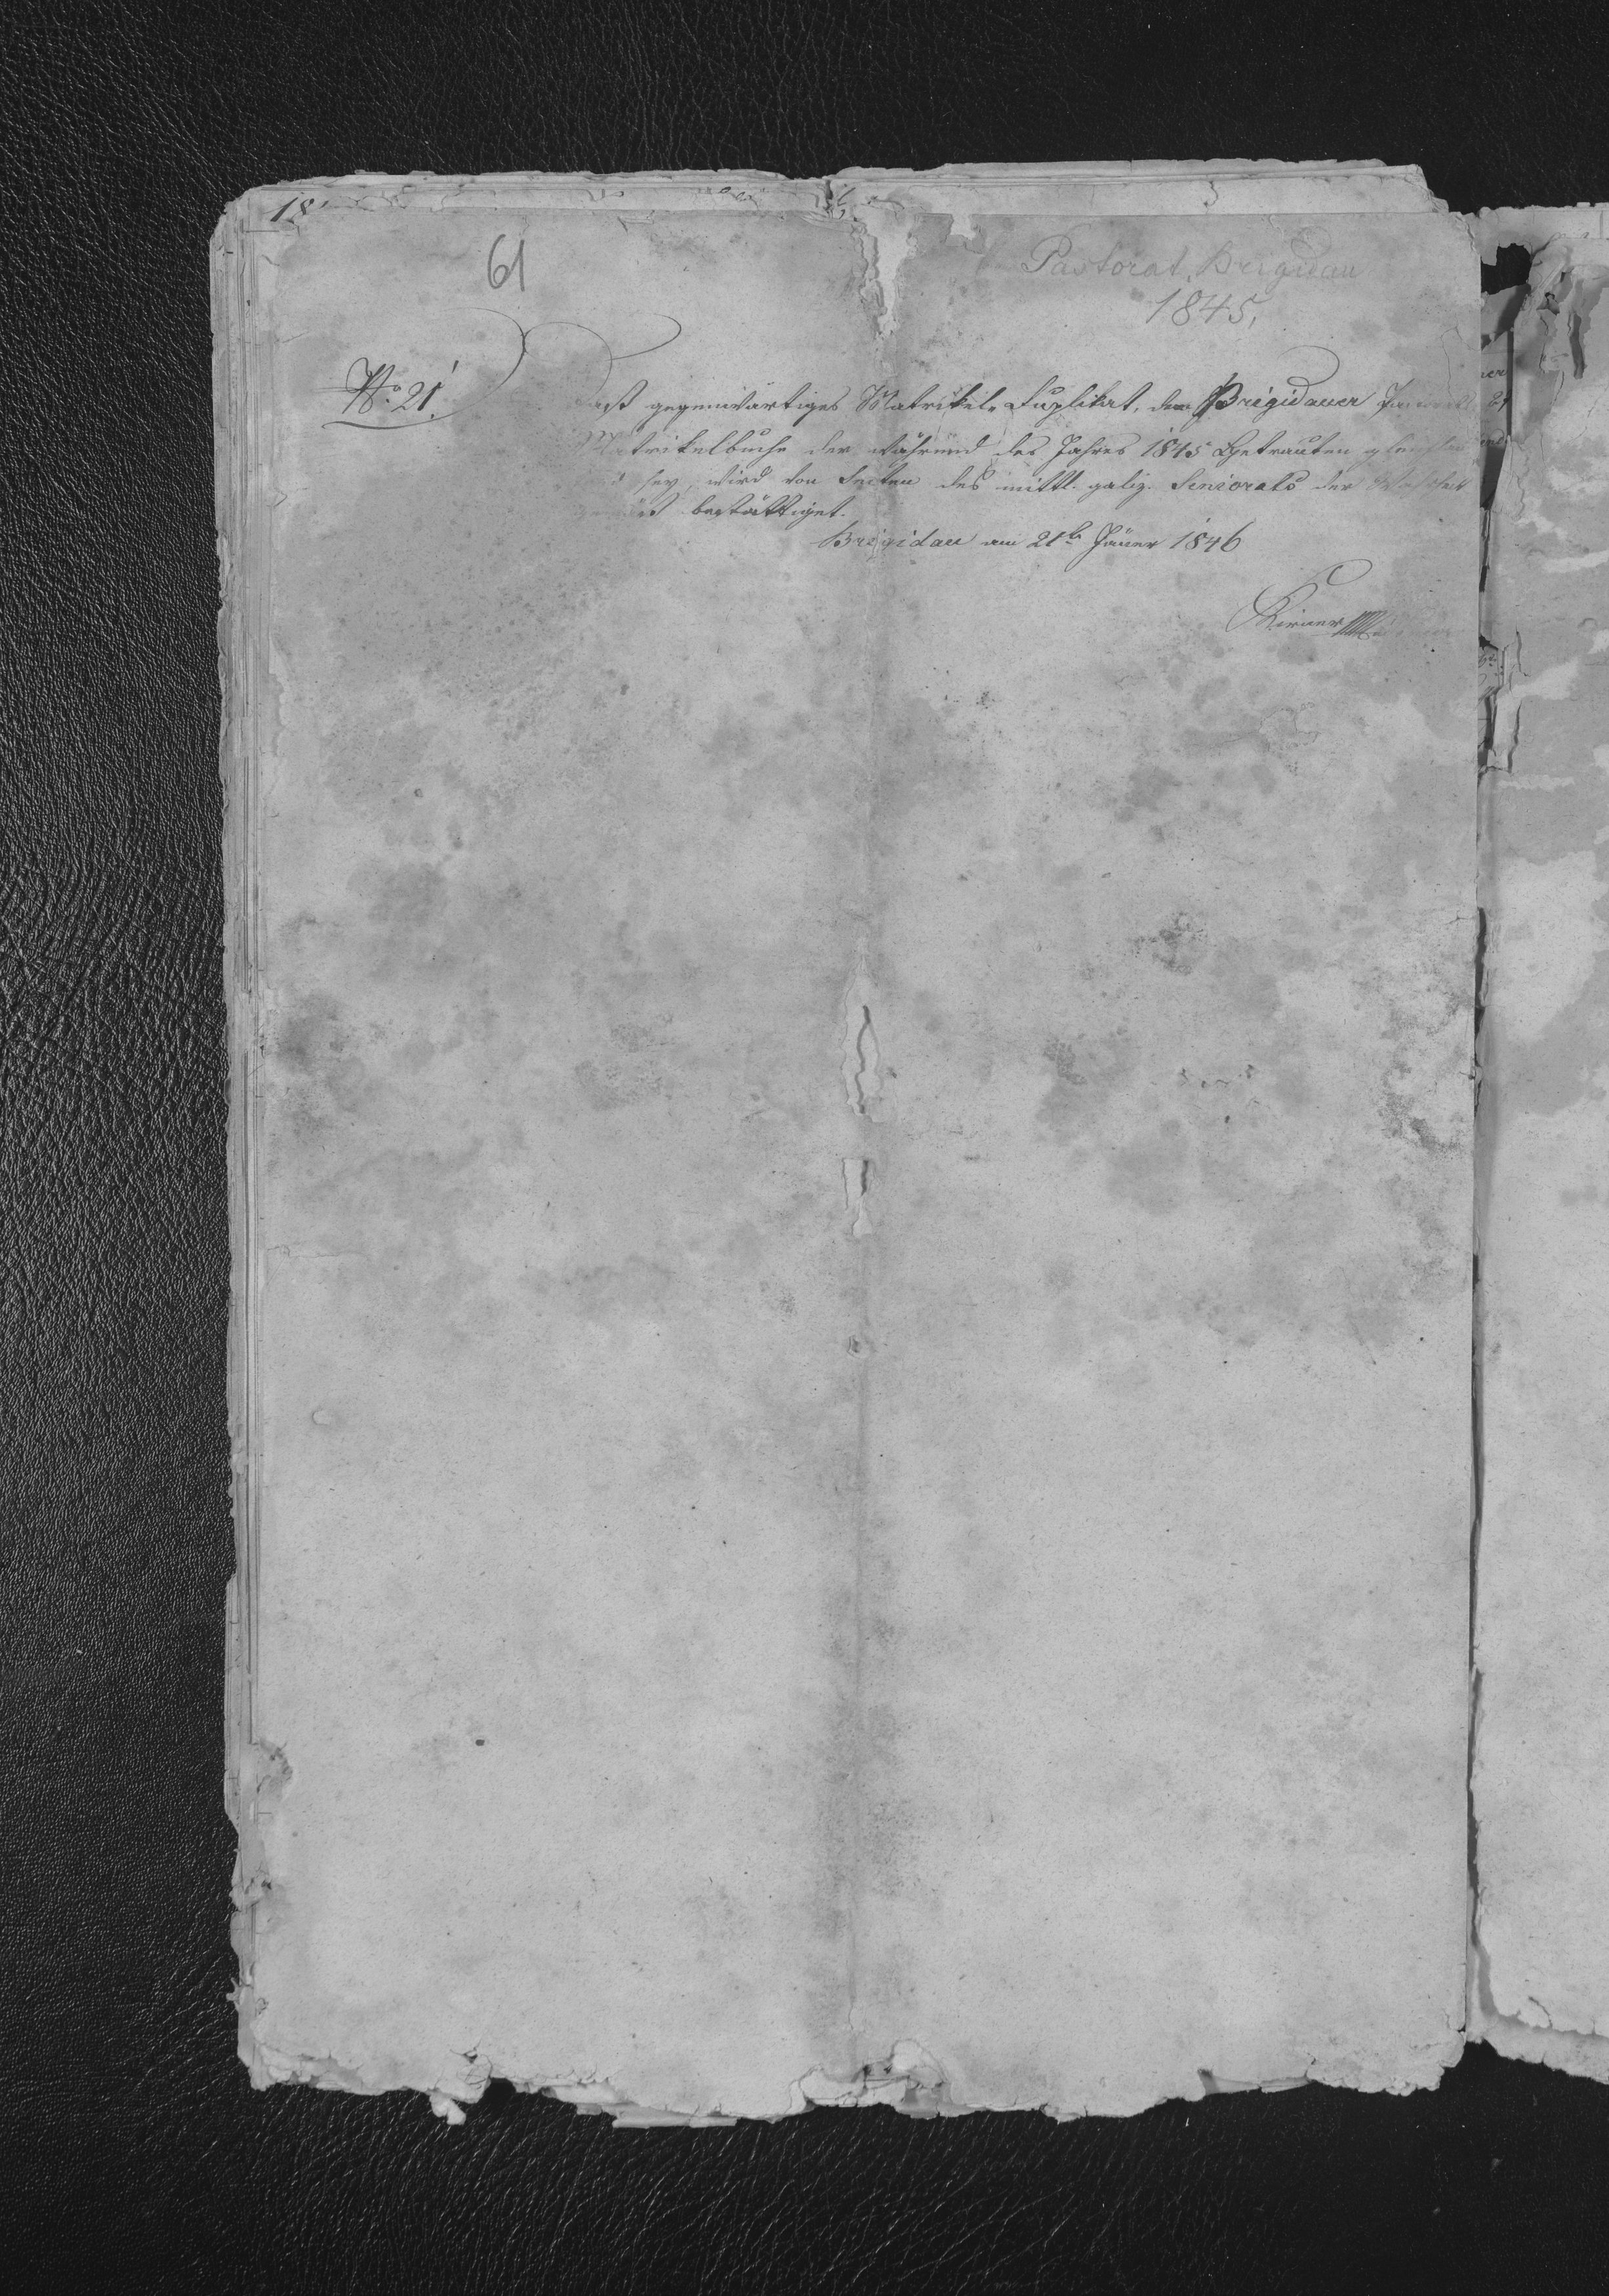 18
61
Pastorat Brigidau
1845.
No 21.
Daß gegenwärtiges Matrikel-Duplikat, dem Brigidauer
Matrikelbuche der während des Jahres 1845 Getrauten
sey, wird von Seiten des mittl. galiz. Seniorats der Wahrheit
gemäß bestättiget.
Brigidau am 21t Jäner 1846